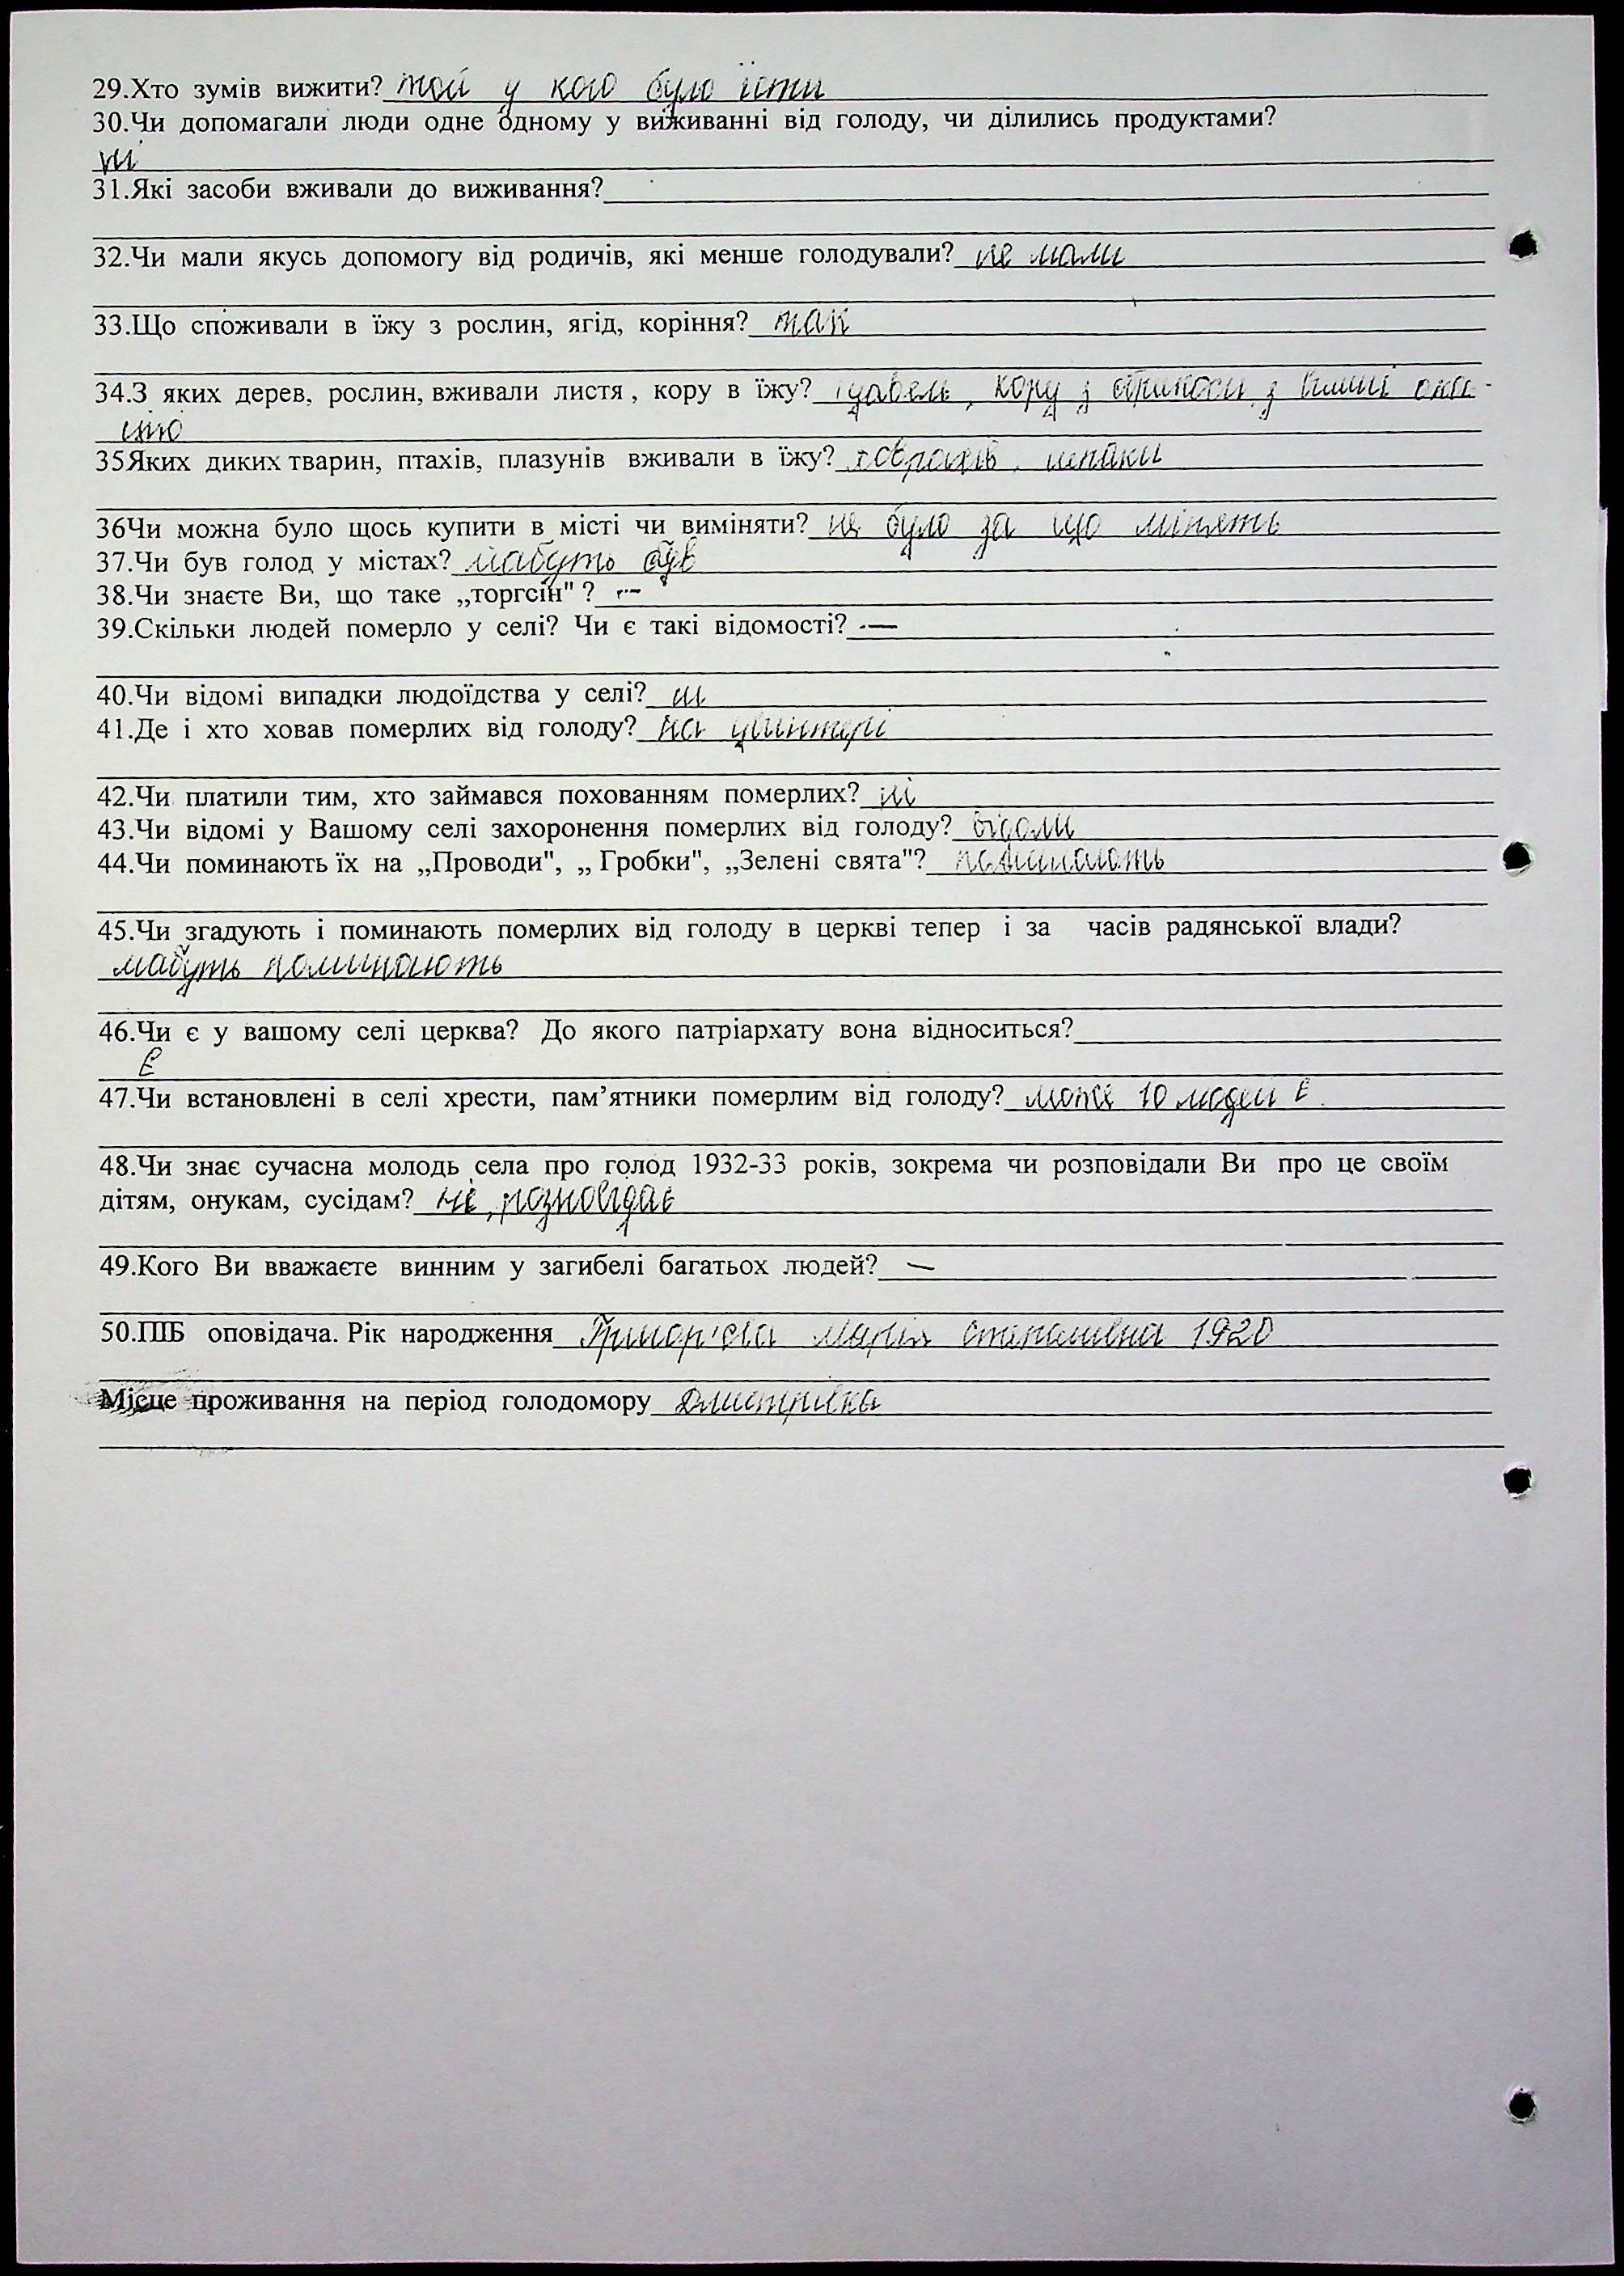 29.Хто зумів вижити? той у кого було їсти
30.Чи допомагали люди одне одному у виживанні від голоду, чи ділились продуктами?
ні
31.Які засоби вживали до виживання?
32.Чи мали якусь допомогу від родичів, які менше голодували? не мали
33.Що споживали в їжу з рослин, ягід, коріння? так
34.З яких дерев, рослин, вживали листя, кору в їжу? щавель, кору з з
35Яких диких тварин, птахів, плазунів вживали в їжу? ховрахів, шпаки
36Чи можна було щось купити в місті чи виміняти? не було за що мінять
37.Чи був голод у містах? мабуть був
38.Чи знаєте Ви, що таке „торгсін"? —
39.Скільки людей померло у селі? Чи є такі відомості? —
40.Чи відомі випадки людоїдства у селі? ні
41.Де і хто ховав померлих від голоду? на цвинтері
42.Чи платили тим, хто займався похованням померлих? ні
43.Чи відомі у Вашому селі захоронення померлих від голоду? відоми
44.Чи поминають їх на „Проводи", „ Гробки", „Зелені свята"? поминають
45.Чи згадують і поминають померлих від голоду в церкві тепер і за часів радянської влади?
мабуть поминають
46.Чи є у вашому селі церква? До якого патріархату вона відноситься?
Є
47.Чи встановлені в селі хрести, пам’ятники померлим від голоду? може 10 людей є.
48.Чи знає сучасна молодь села про голод 1932-33 років, зокрема чи розповідали Ви про це своїм
дітям, онукам, сусідам? ні, розповідає
49.Кого Ви вважаєте винним у загибелі багатьох людей? —
50.ПІБ оповідача. Рік народження Марія 1920
Місце проживання на період голодомору Дмитрівка